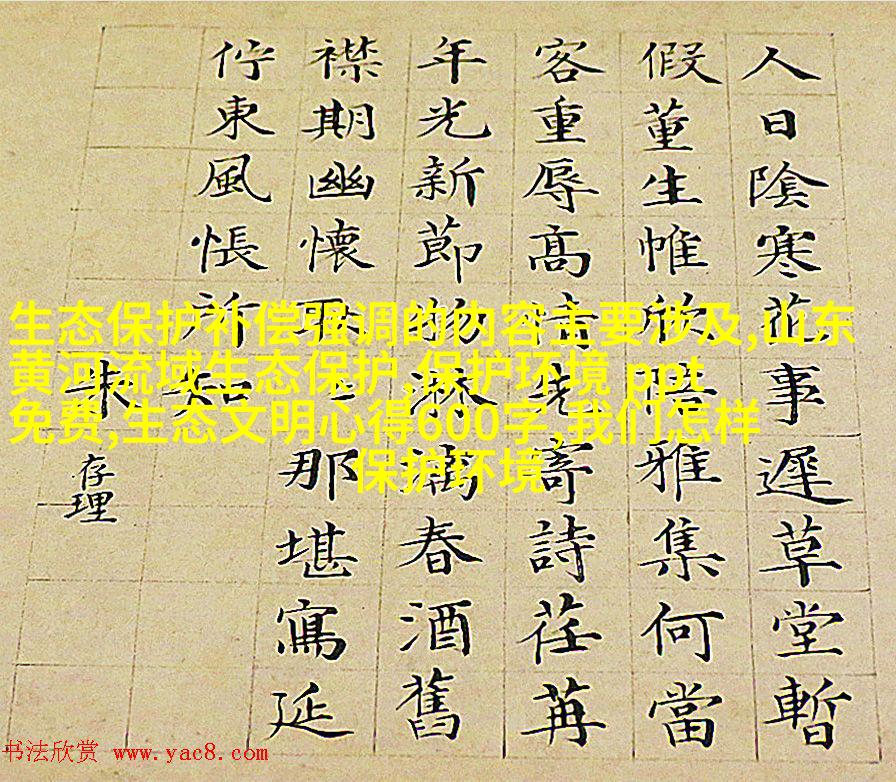 人日陰寒花事遲草堂暫
假董生帷欣陪雅集何當
客重辱高情先寄詩荏苒
年光新節物淋漓春酒舊
襟期幽懷耿〻那堪寫延
佇東風悵所知
朱存理
生态保护补偿强调的内容主要涉及,山东
黄河流域生态保护,保护环境 ppt
免费,生态文明心得600字,我们怎样
保护环境
书法欣赏 www.yac8.com